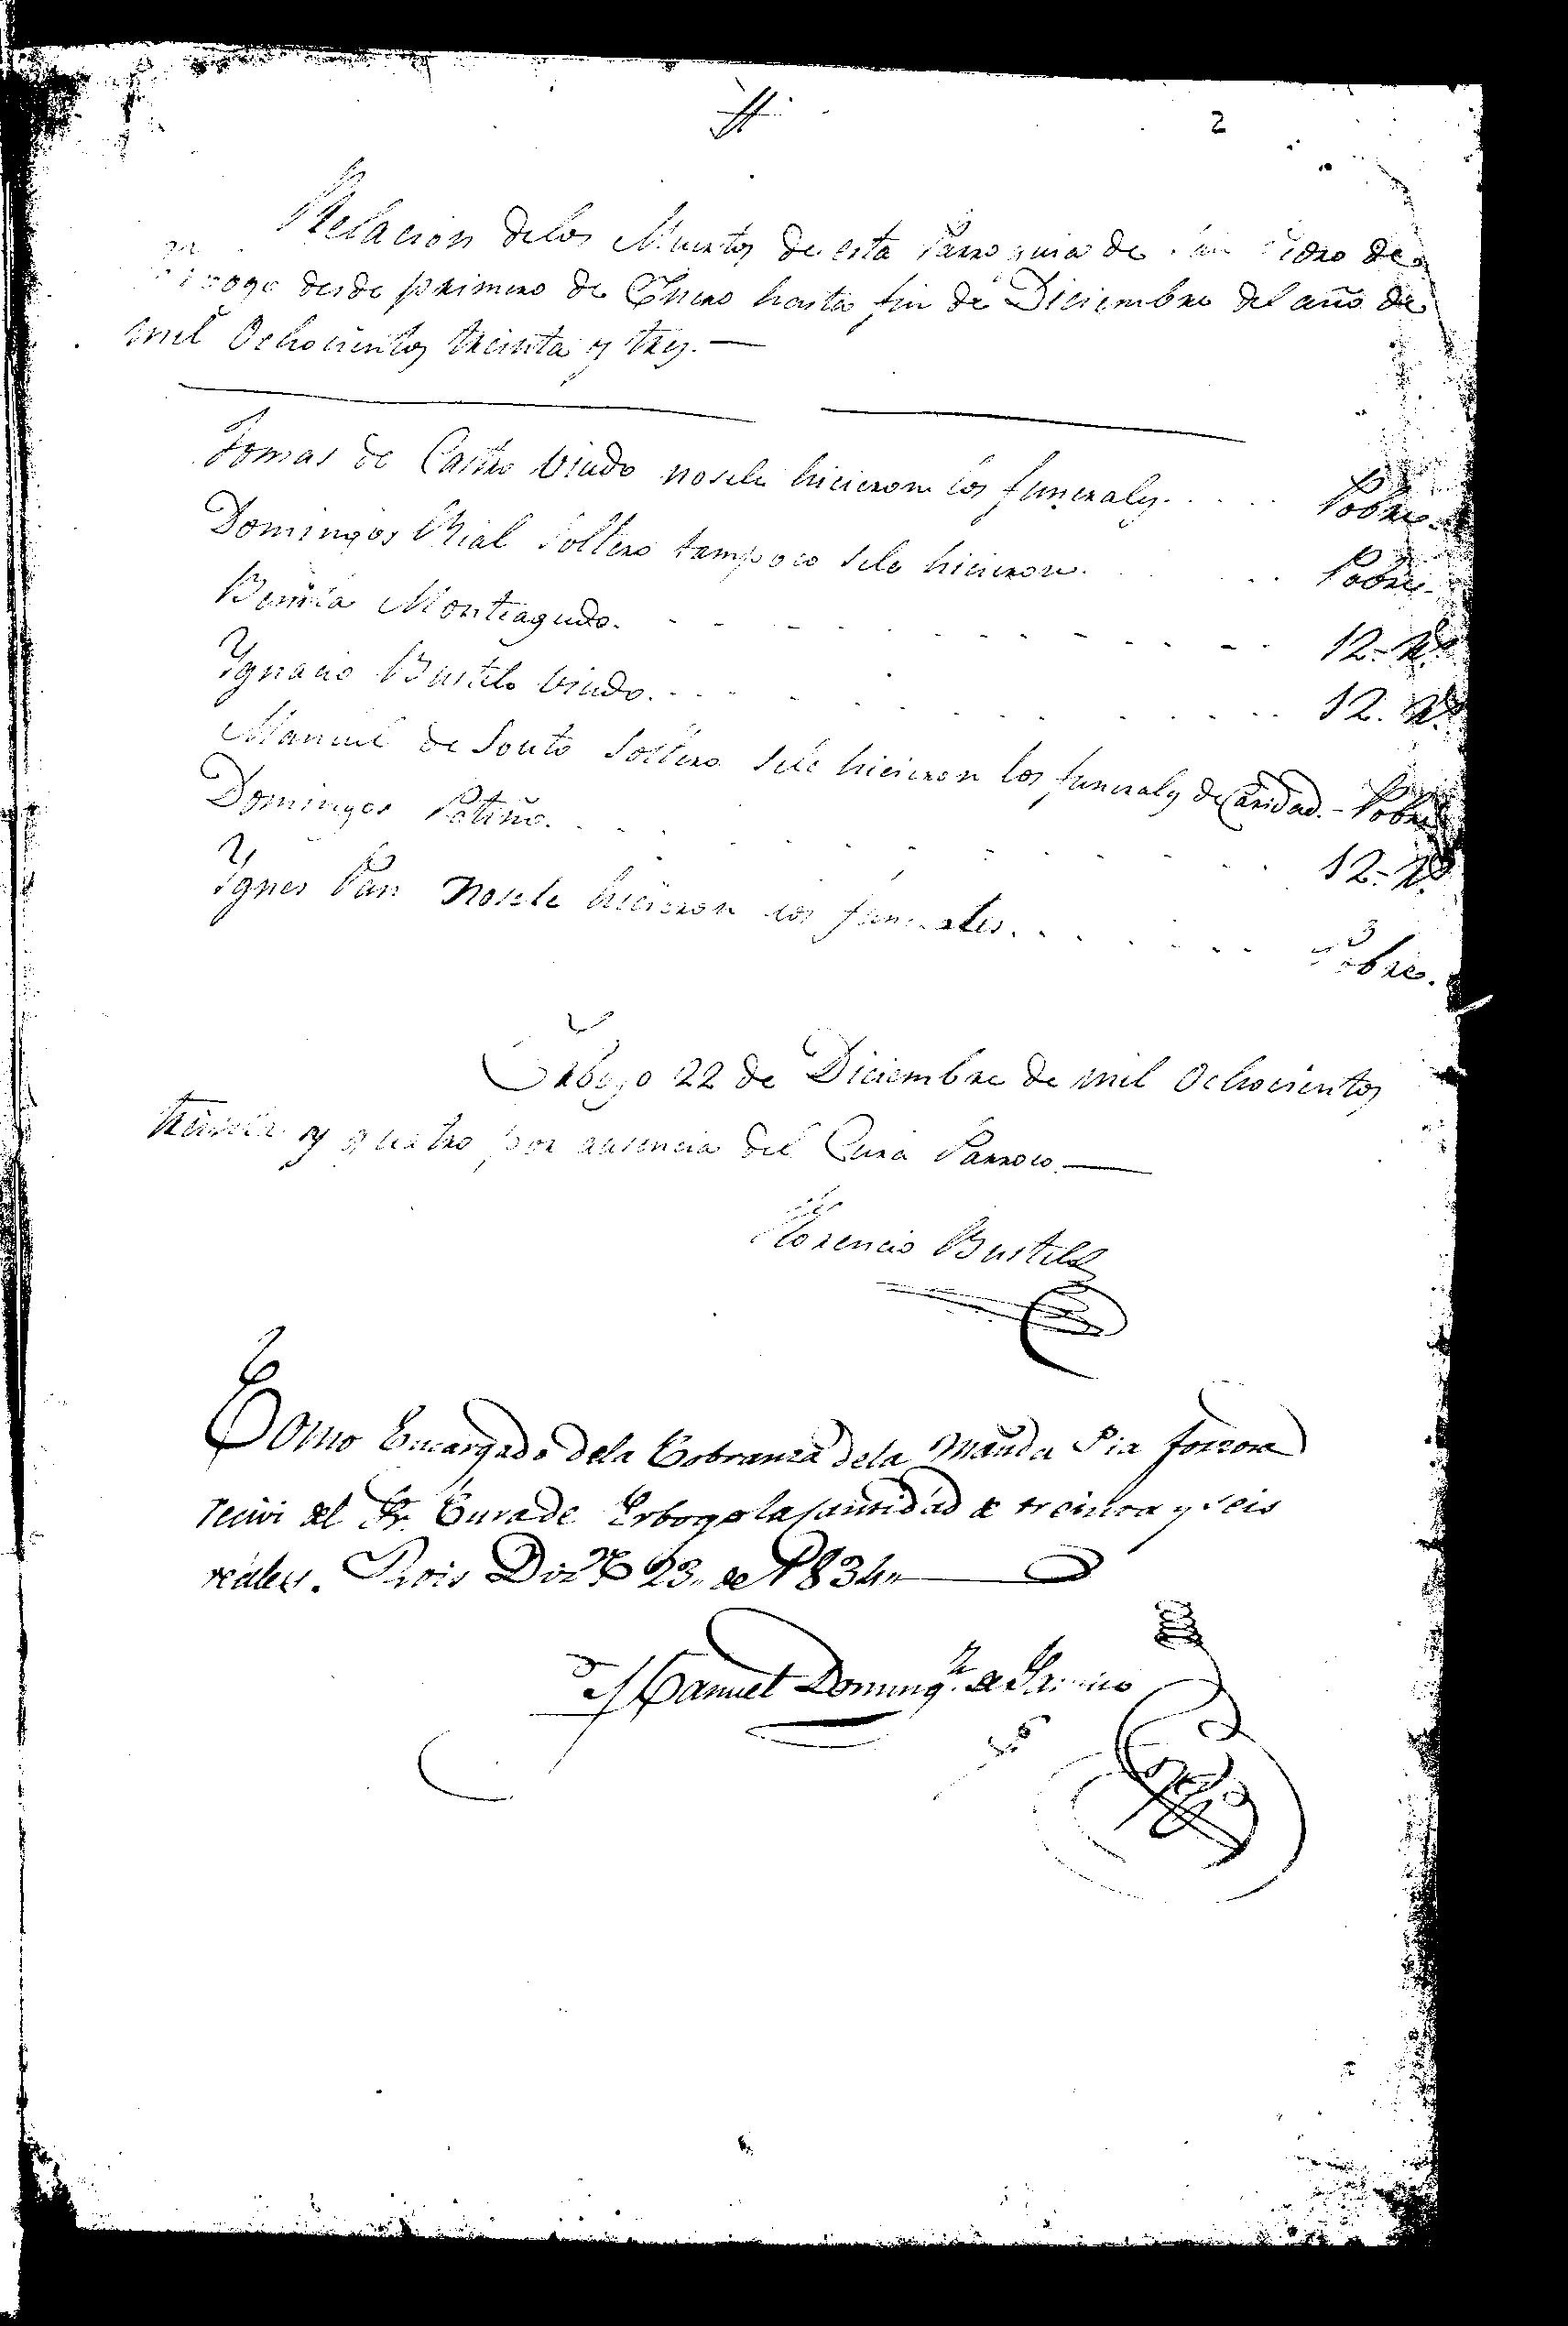 2
Relacion delos Muertos de esta Parroquia de San Pedro de
desde primero de Enero hasta fin de Diciembre del año de
mil Ochocientos treinta y tres.
Tomas de Castro Viudo nosele hicieron los funerales. Pobre.
Domingos Rial Soltero tampoco sele hicieron. Pobre.
Benita Monteagudo. 12. Rs.
Ygnacio Bustelo Viudo. 12. Rs.
Manuel de Souto Soltero sele hicieron los funerales de Caridad. - Pobre
Domingos Patiño. 12. Rs.
Ygnes Pan nosele hicieron los funerales. Pobre.
Erbogo 22 de Diciembre de mil Ochocientos
treinta y quatro por ausencia del Cura Parroco.
Florencio Bustelo
Como Encargado dela Cobranza dela Manda Pia forzosa
recivi del Sr. Cura de Erbogo la cantidad de treinta y seis
reales. Rois Dizre 23,, de 1834,,
Manuel Domingz. de